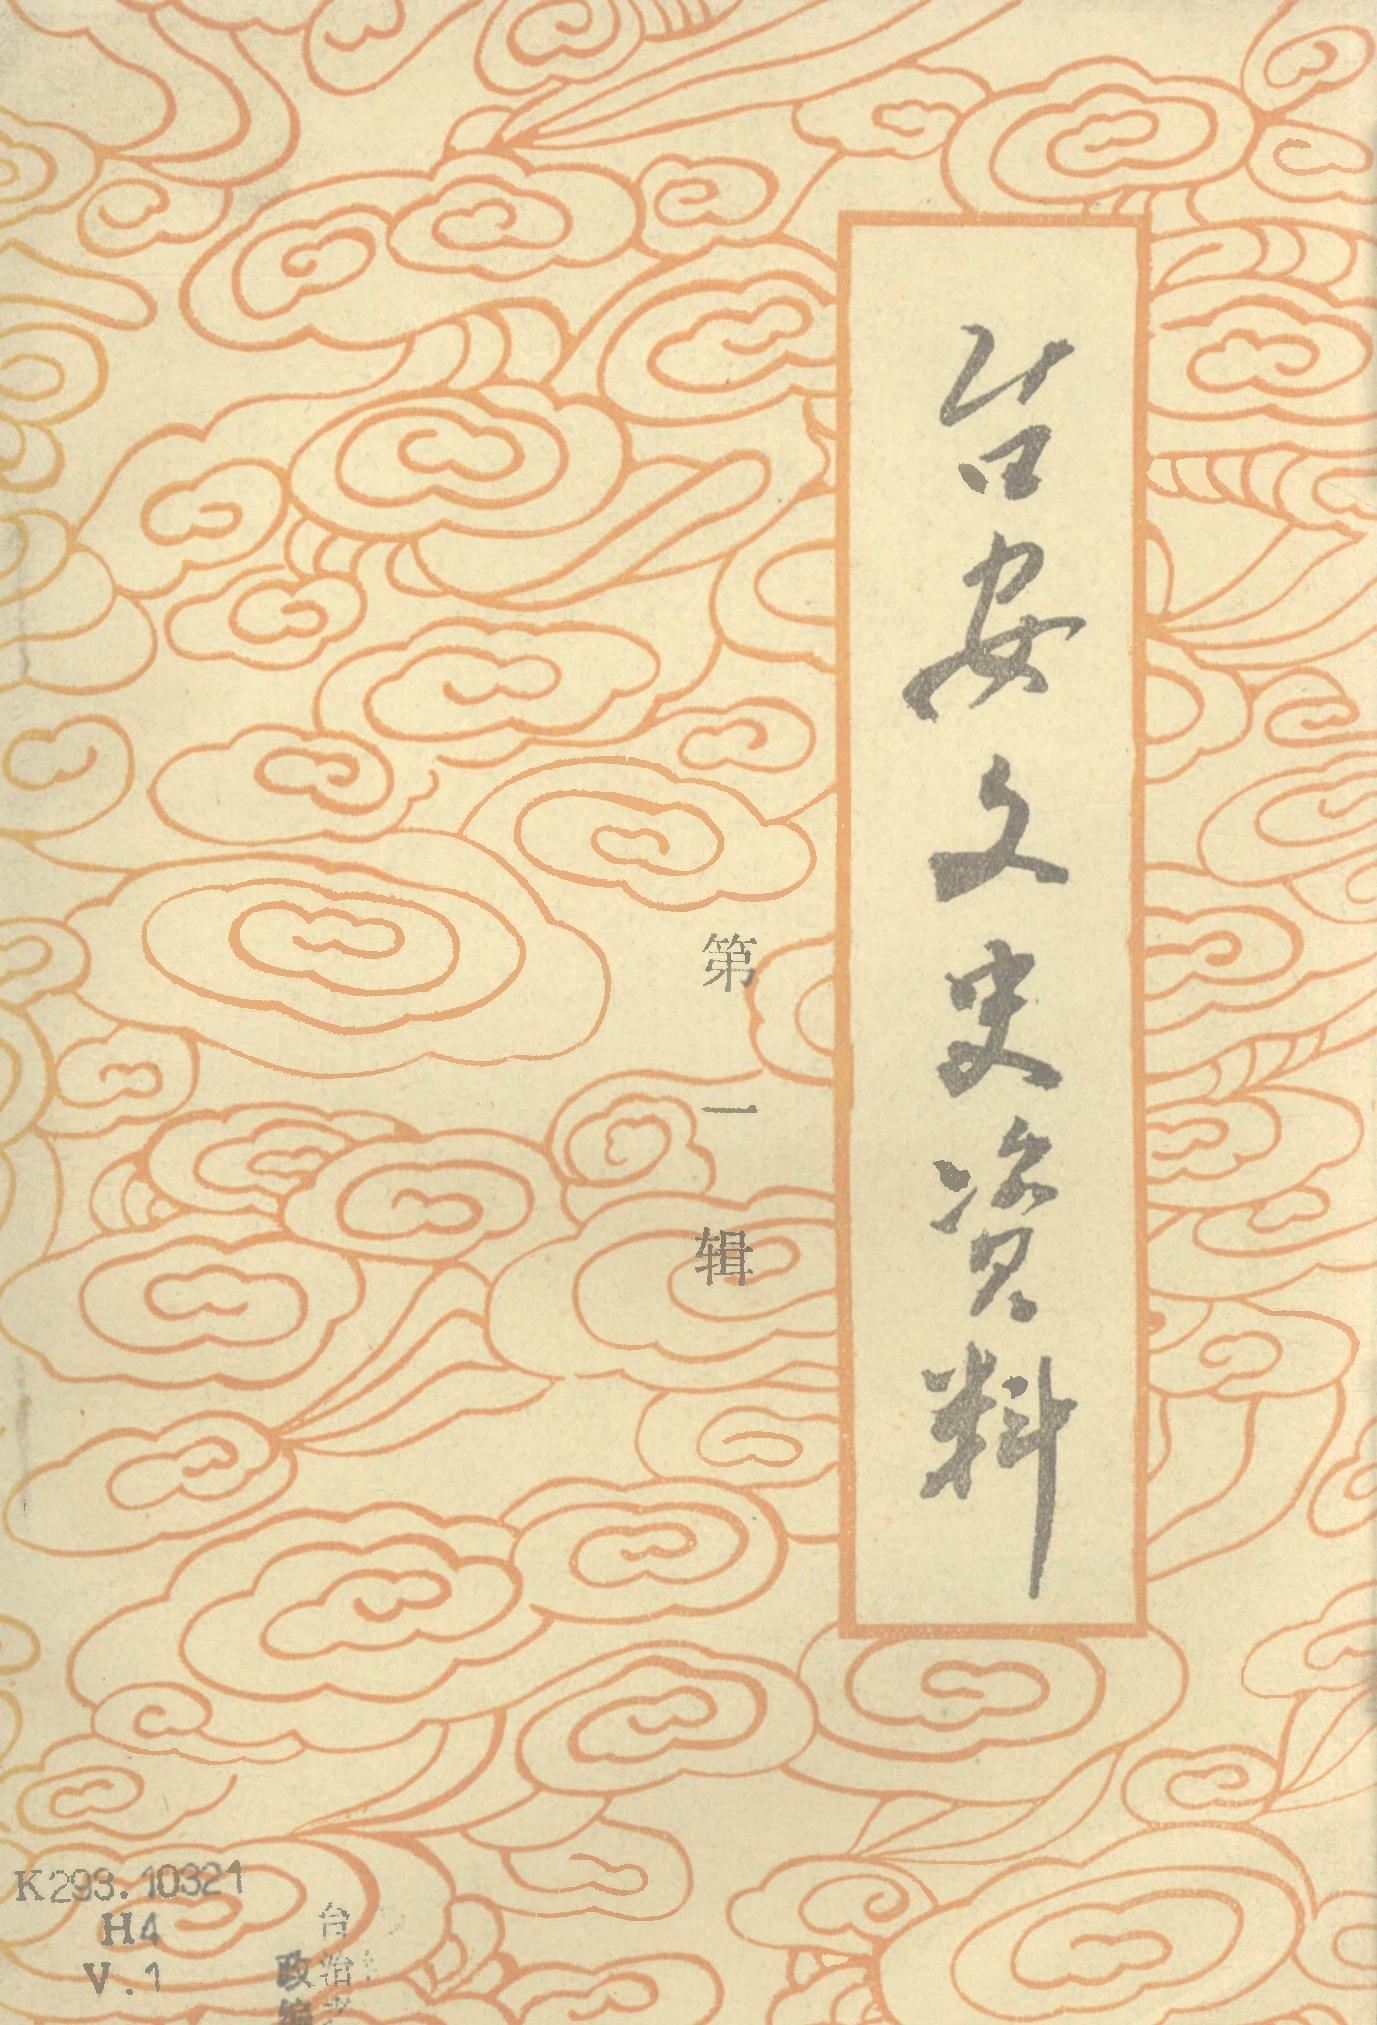 台安文史资料
第一辑
K293.10321
H4
V.1
台治
政编